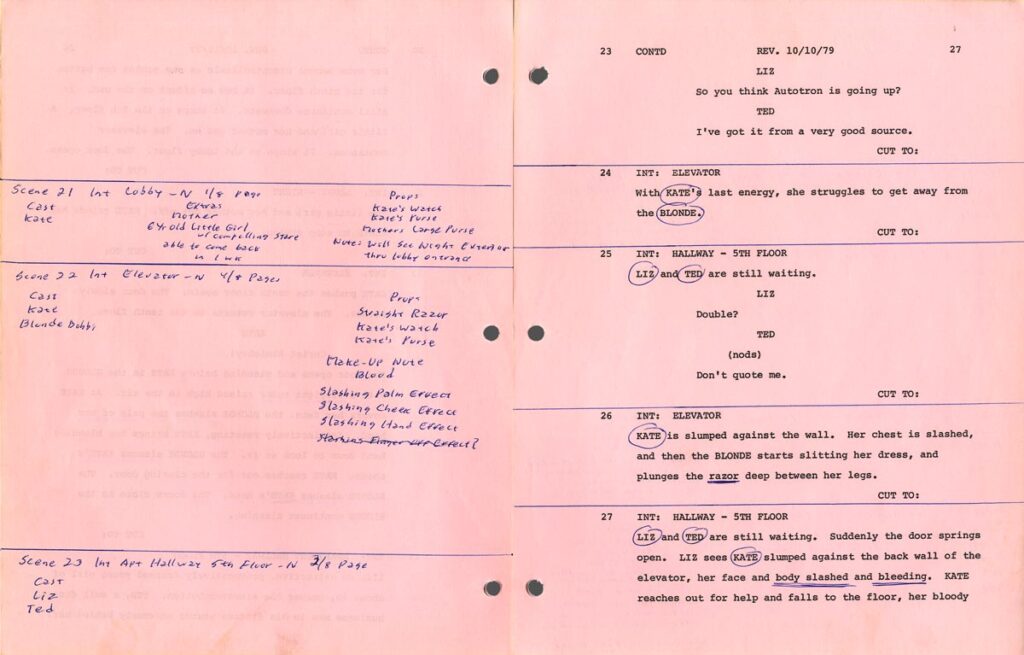 Scene 21 Int Lobby -N 1/8 Page
Cast Extras Props
Kate Mother Kate's Watch
6yr old Little Girl Kate's Purse
w/ compelling stare Mothers Large Purse
able to come back Note: Will See Night Exterior
in 1 wk thru lobby entrance
Scene 22 Int Elevator -N 4/8 Pages
Cast Props
Kate Straight Razor
Blonde Bobbi Kate's Watch
Kate's Purse
Make-Up Note
Blood
Slashing Palm Effect
Slashing Cheek Effect
Slashing Hand Effect
Slashing Finger Effect?
Scene 23 Int Apt Hallway 5th Floor -N 2/8 Page
Cast
Liz
Ted
23 CONTD REV. 10/10/79 27
LIZ
So you think Autotron is going up?
TED
I've got it from a very good source.
CUT TO:
24 INT: ELEVATOR
With KATE's last energy, she struggles to get away from
the BLONDE.
CUT TO:
25 INT: HALLWAY - 5TH FLOOR
LIZ and TED are still waiting.
LIZ
Double?
TED
(nods)
Don't quote me.
CUT TO:
26 INT: ELEVATOR
KATE is slumped against the wall. Her chest is slashed,
and then the BLONDE starts slitting her dress, and
plunges the razor deep between her legs.
CUT TO:
27 INT: HALLWAY - 5TH FLOOR
LIZ and TED are still waiting. Suddenly the door springs
open. LIZ sees KATE slumped against the back wall of the
elevator, her face and body slashed and bleeding. KATE
reaches out for help and falls to the floor, her bloody